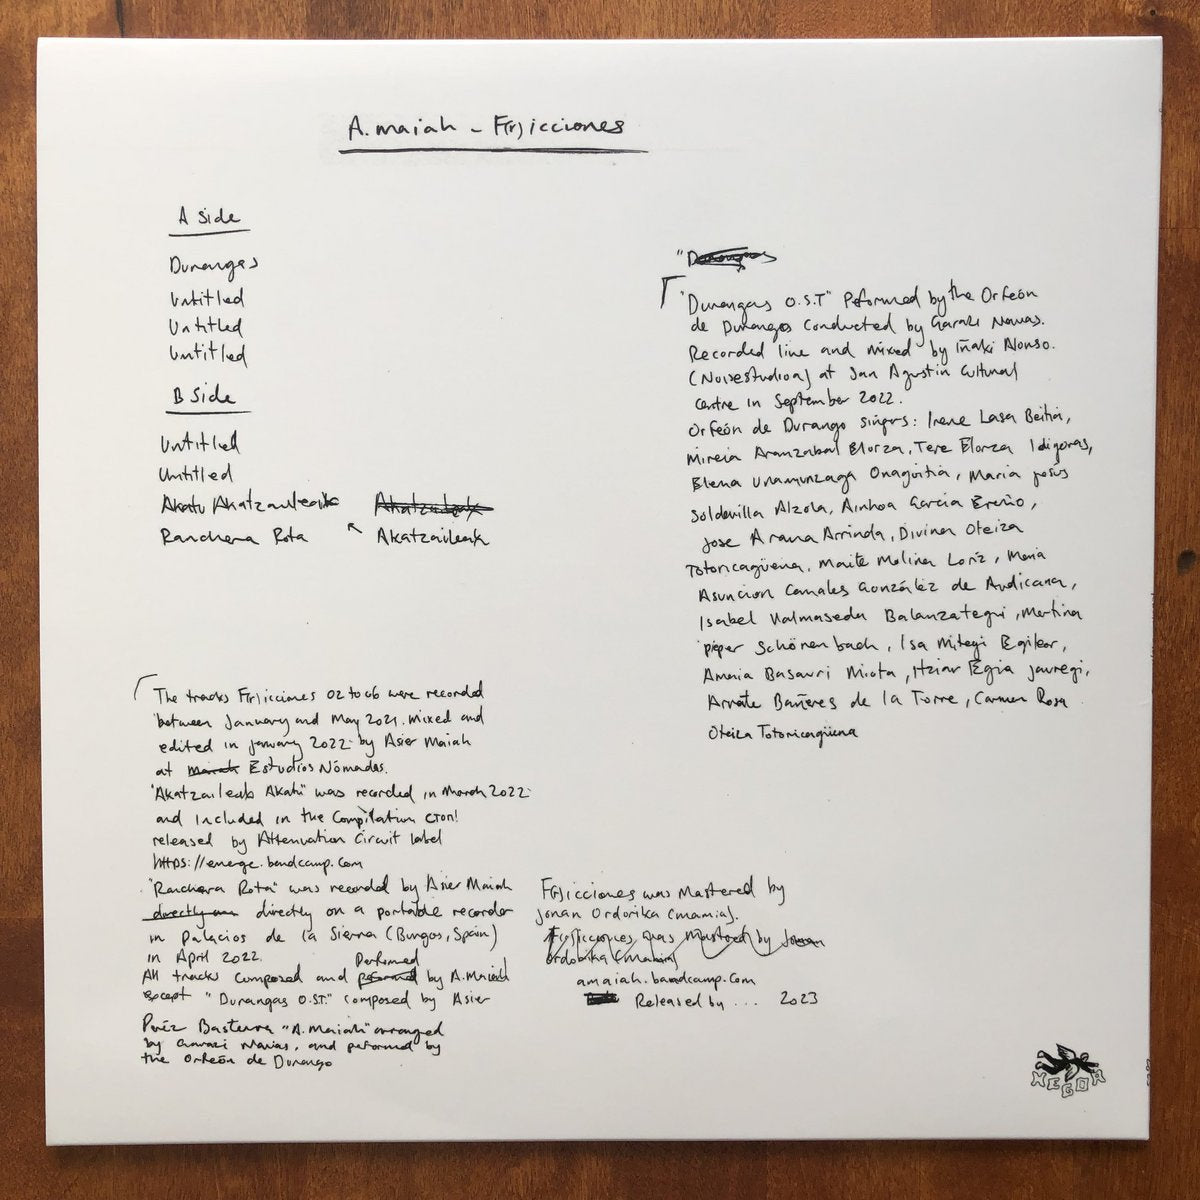 A.maiah - F(r)icciones
A Side
Durangas
Untitled
Untitled
Untitled
B Side
Untitled
Untitled
Akatu Akatzaileak Akatzaileak
Ranchera Rota Akatzaileak
"Durangas
"Durangas O.S.T" Peformed by the Orfeón
de Durango Conducted by Garazi Navas.
Recorded line and mixed by Iñaki Alonso.
(Noisestudioa) at San Agustin Cultural
Centre in September 2022.
Orfeón de Durango singers: Irene Lasa Beitia,
Mireia Aranzabal Elorza, Tere Elorza Idigoras,
Elena Unamunzaga Onagoitia, Maria Jesús
Soldevilla Alzola, Ainhoa Garcia Ereño,
Jose Arana Arrinda, Divina Oteiza
Totoricagüena, Maite Molina Loriz, Maria
Asuncion Canales González de Audicana,
Isabel Valmaseda Balanzategui, Martina
pieper Schönenbach, Isa Mitegi Egileor,
Amaia Basauri Miota, Itziar Egia Jauregi,
Arrate Bañeres de la Torre, Carmen Rosa
Oteiza Totoricagüena
The tracks F(r)icciones 02 to 06 were recorded
between January and May 2021. mixed and
edited in january 2022 by Asier Maiah
at Maiah Estudios Nómadas.
"Akatzaileak Akatu" was recorded in March 2022
and included in the Compilation CTON!
released by Attenuation Circuit label
https://emerge.bandcamp.com
"Ranchera Rota" was recorded by Asier Maiah
directly on directly on a portable recorder
in Palacios de la Sierra (Burgos, Spain)
in April 2022.
Performed
All tracks composed and peformed by A.Maiah
except "Durangas O.S.T." composed by Asier
Peréz Basterra "A.Maiah" arranged
by Garazi Navas, and peformed by
the Orfeón de Durango
F(r)icciones was Mastered by
Jonan Ordorika (Mamia).
F(r)icciones was Mastered by Jonan
Ordorika (Mamia)
amaiah.bandcamp.com
Released by ... 2023
HEGOA